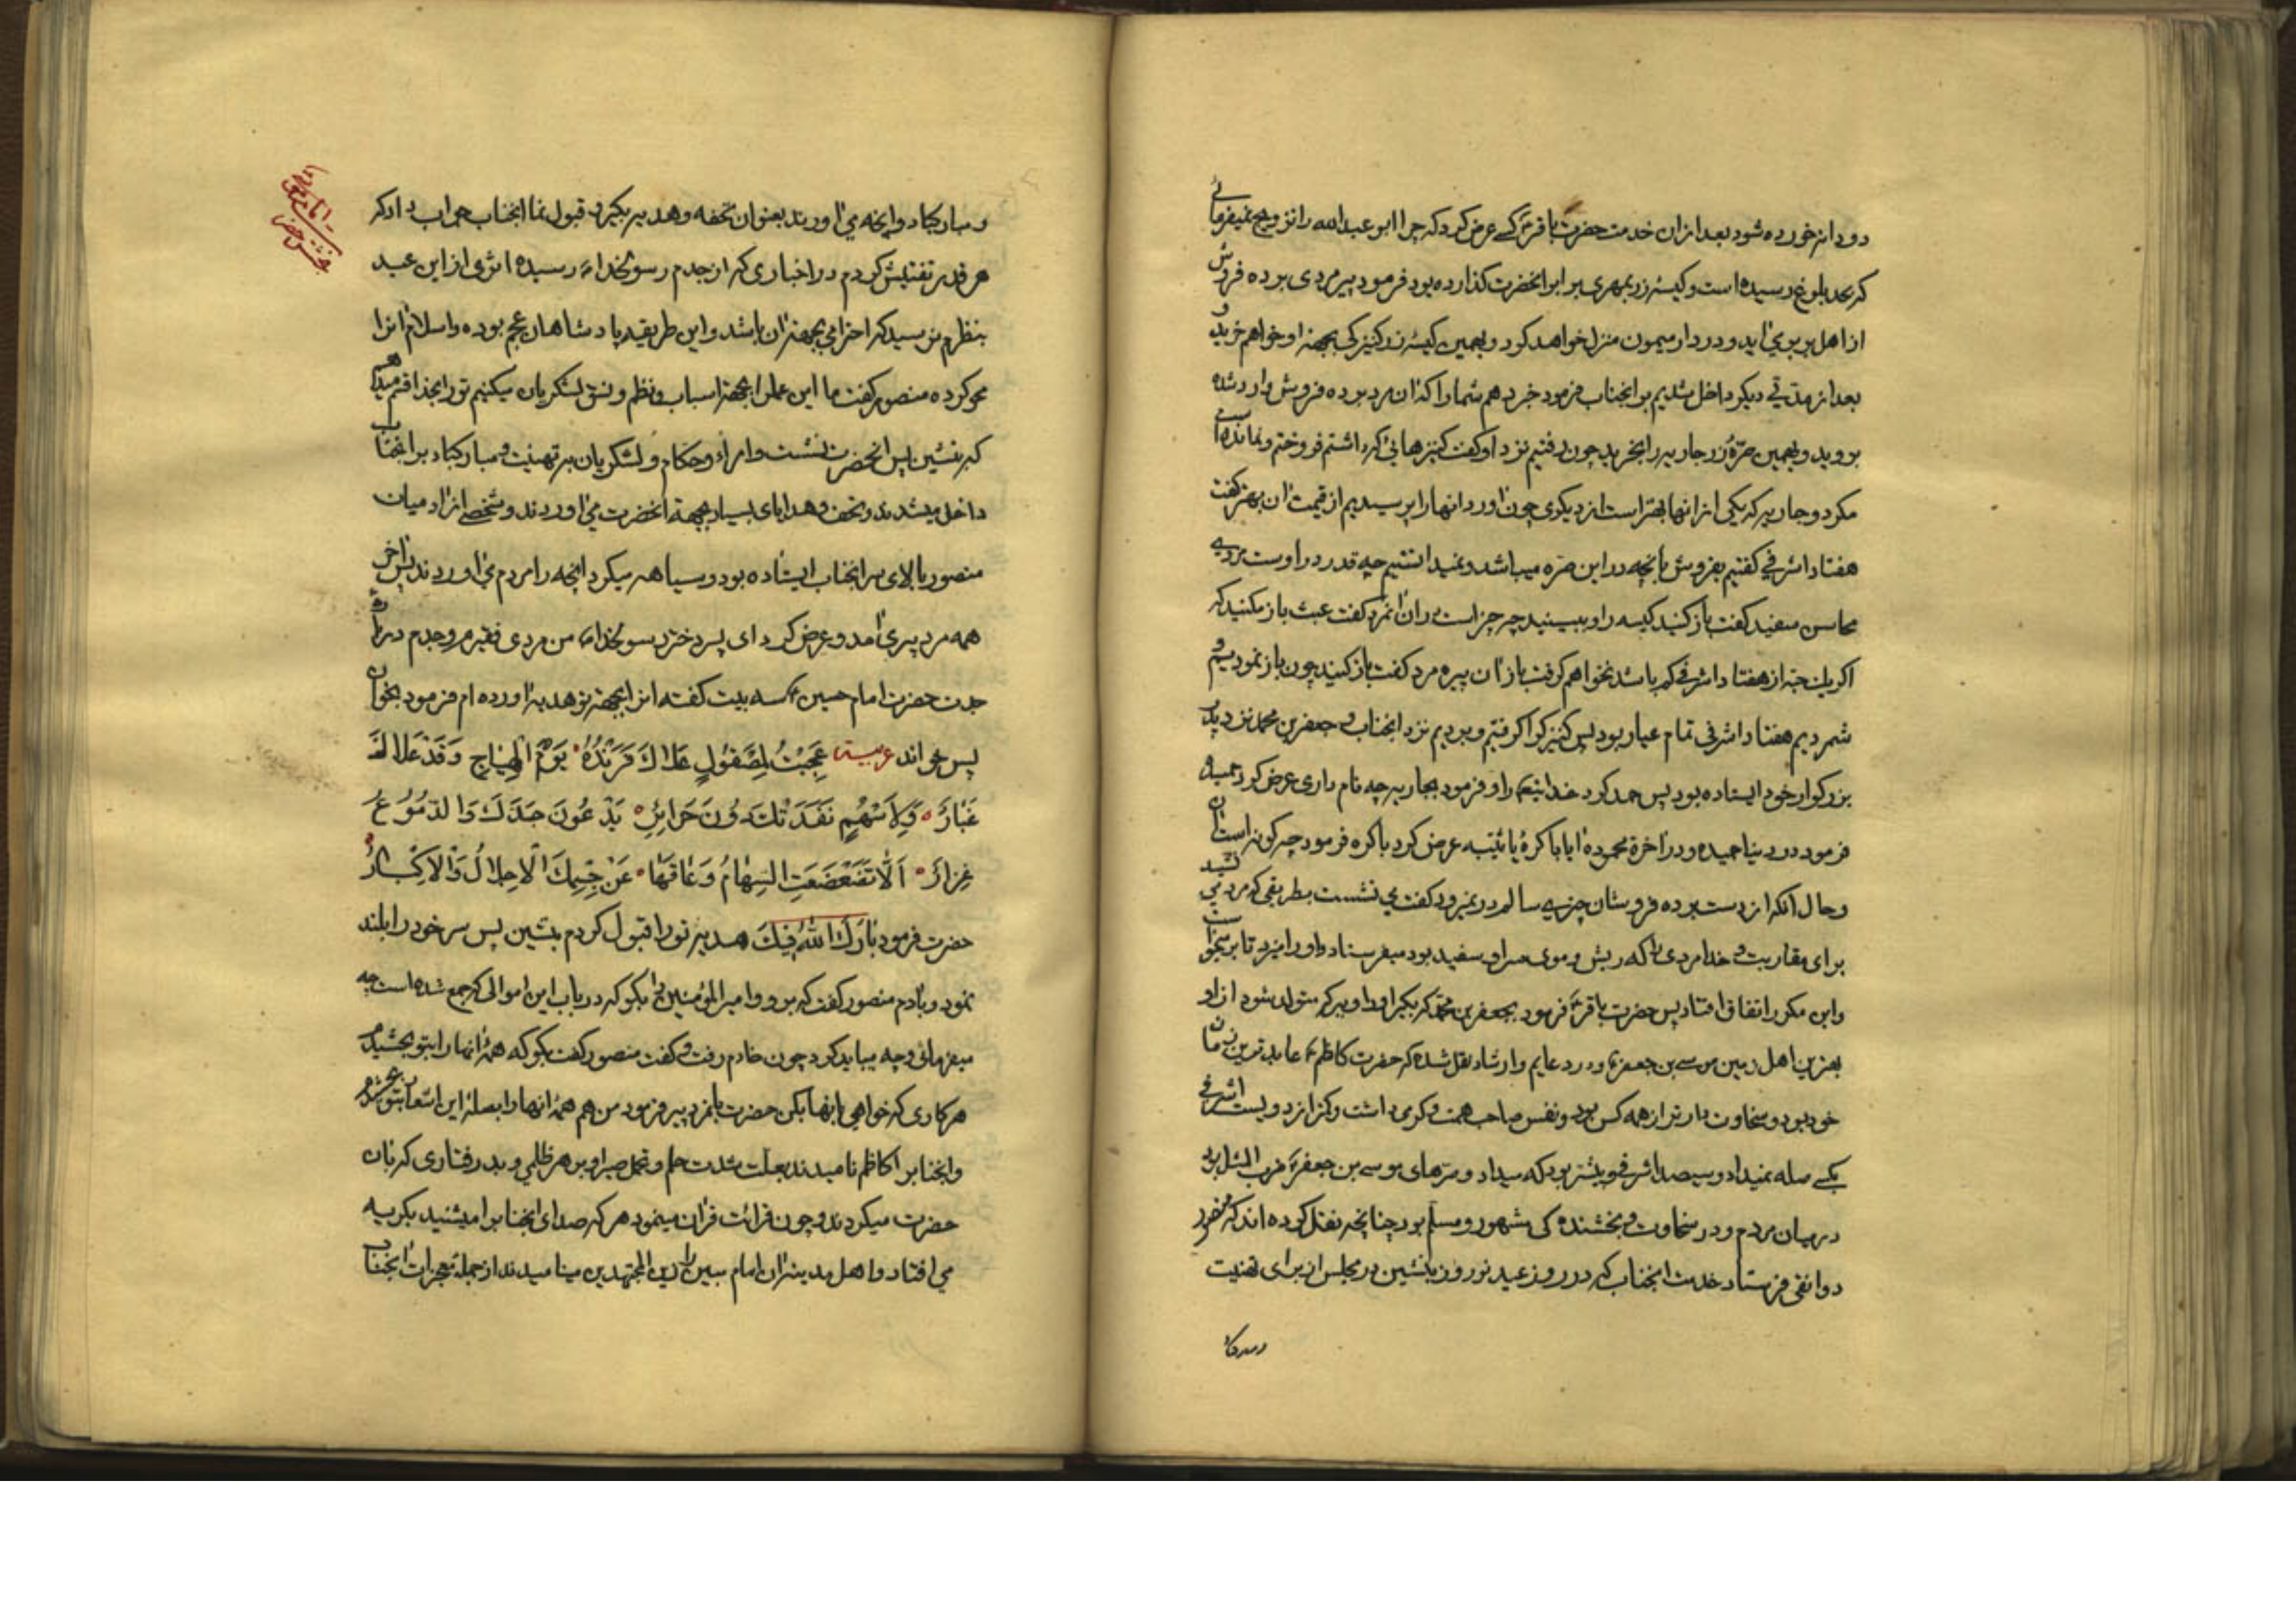 دو دانه خورده شود بعد از ان خدمت حضرت باقر ع کسے عرض کرد که چرا ابو عبد الله را تزویج نمیفرمائے
که بحد بلوغ رسیده است و کیسهٔ زر بمهری برابر انحضرت گذارده بود فرمود پیر مردی برده فروش
از اهل بربر می اید و در دار میمون منزل خواهد کرد و بهمین کیسه زر کنیزکی بجهة او خواهم خرید و
بعد از مدتے دیگر داخل شدیم بر انجناب فرمود خبر دهم شما را که ان مرد برده فروش وارد شده
بروید و بهمین صرّهٔ زر جاریه را بخرید چون رفتیم نزد او گفت کنیزهائی که داشتم فروختم و نمانده است
مکر دو جاریه که یکی از انها بهتر است از دیگری چون اورد انها را پرسیدیم از قیمت ان بهتر گفت
هفتاد اشرفی گفتیم بفروش بانچه در این صره میباشد و نمیدانستیم چه قدر در اوست مردے
محاسن سفید گفت باز کنید کیسه را و ببینید چه چیز است در ان انمرد گفت عبث باز مکنید که
اگر یک حبّه از هفتاد اشرفی کم باشد نخواهم گرفت باز ان پیره مرد گفت باز کنید چون باز نمودیم و
شمردیم هفتاد اشرفی تمام عیار بود پس کنیزک را گرفتیم و بردیم نزد انجناب و جعفر بن محمد نزد پدر
بزرکوار خود ایستاده بود پس حمد کرد خدایتعا را و فرمود بجاریه چه نام داری عرض کرد حمیده
فرمود در دنیا حمیده و در اخرة محموده ایا باکرهٔ یا ثیّبه عرض کرد باکره فرمود چه کونه است ان
و حال انکه از دست برده فروشان چیزے سالم در نمیرود گفت می نشست بطریقی که مرد می نشیند
برای مقاربت و خدا مردی را که ریش و موی سر او سفید بود میفرستاد و او را میزد تا بر میخواست
و این مکرر اتفاق افتاد پس حضرت باقر ع فرمود بجعفر بن محمّد که بگیر او را و پسر که متولد شود از او
بهترین اهل زمین موسے بن جعفر ع و در دعایم و ارشاد نقل شده که حضرت کاظم ع عابد ترین زمان
خود بود و سخاوت دار تر از همه کس بود و نفس صاحب همت و کرمی داشت و کمتر از دویست اشرفی
بکسے صله نمیداد و سیصد اشرفی و بیشتر بود که میداد و صرّهای موسے بن جعفر ع ضرب المثل بود
در میان مردم و در سخاوت و بخشنده کی مشهور و مسلّم بود چنانچه نقل کرده اند که منصور
دوانقی فرستاد خدمت انجناب که در روز عید نوروز بنشین در مجلس از برای تهنیت
و مبارکباد
و مبارکباد و انچه می اورند بعنوان تحفه و هدیه بگیر و قبول نما انجناب جواب داد که
هر قدر تفتیش کردم در اخباری که از جدم رسولخدا ص رسیده اثری از این عید
بنظرم نرسید که احترامی بجهة ان باشد و این طریقهٔ پادشاهان عجم بوده و اسلام انرا
محو کرده منصور گفت ما این عمل را بجهة اسباب و نظم و نسق لشکریان میکنیم تو را بخدا قسم میدهم
که بنشین پس انحضرت نشست و امراء و حکام و لشکریان به تهنیت و مبارکباد بر انجناب
داخل میشدند و تحف و هدایای بسیار بجهة انحضرت می اوردند و شخصے از ادمیان
منصور بالای سر انجناب ایستاده بود و سیاهه میکرد انچه را مردم می اوردند پس اخر
همه مرد پیری امد و عرض کرد ای پسر دختر رسولخدا ص من مردی فقیرم و جدم در رثاء
جدت حضرت امام حسین ع سه بیت گفته انرا بجهة تو هدیه اورده ام فرمود بخوان
پس خواند عربیة عَجِبْتُ لِمَصْقُولٍ عَلاكَ فَرَنْدُهُ يَوْمَ الْهِيَاجِ وَقَدْ عَلاكَ
غُبَارُ وَلِأَسْهُمٍ نَفَذَتْكَ دُونَ حَرَائِرٍ يَدْعُونَ جَدَّكَ وَالدُّمُوعُ
غِزَارُ اَلَّا تَقَضْقَضَتِ السِّهَامُ وَعَاقَهَا عَنْ جِسْمِكَ الْاِجْلَالُ وَالْاِكْبَارُ
حضرت فرمود بَارَكَ اللهُ فِيْكَ هدیه تو را قبول کردم بنشین پس سر خود را بلند
نمود و بادم منصور گفت که برو و امیر المؤمنین را بگو که در باب این اموالی که جمع شده است چه
میفرمائی و چه میباید کرد چون خادم رفت و گفت منصور گفت بگو که همهٔ انها را بتو بخشیدم
هر کاری که خواهی بانها بکن حضرت بانمرد پیر فرمود من هم همهٔ انها را بصلهٔ این اشعار بتو بخشیدم
و انجناب را کاظم نامیدند بعلت شدت حلم و تحمل صبر او بر هر ظلمی و بد رفتاری که بان
حضرت میکردند و چون قرائت قران مینمود هر که صدای انجناب را میشنید بگریه
می افتاد و اهل مدینه ان امام مبین را زین المجتهدین مینامیدند از جمله معجزات انجناب